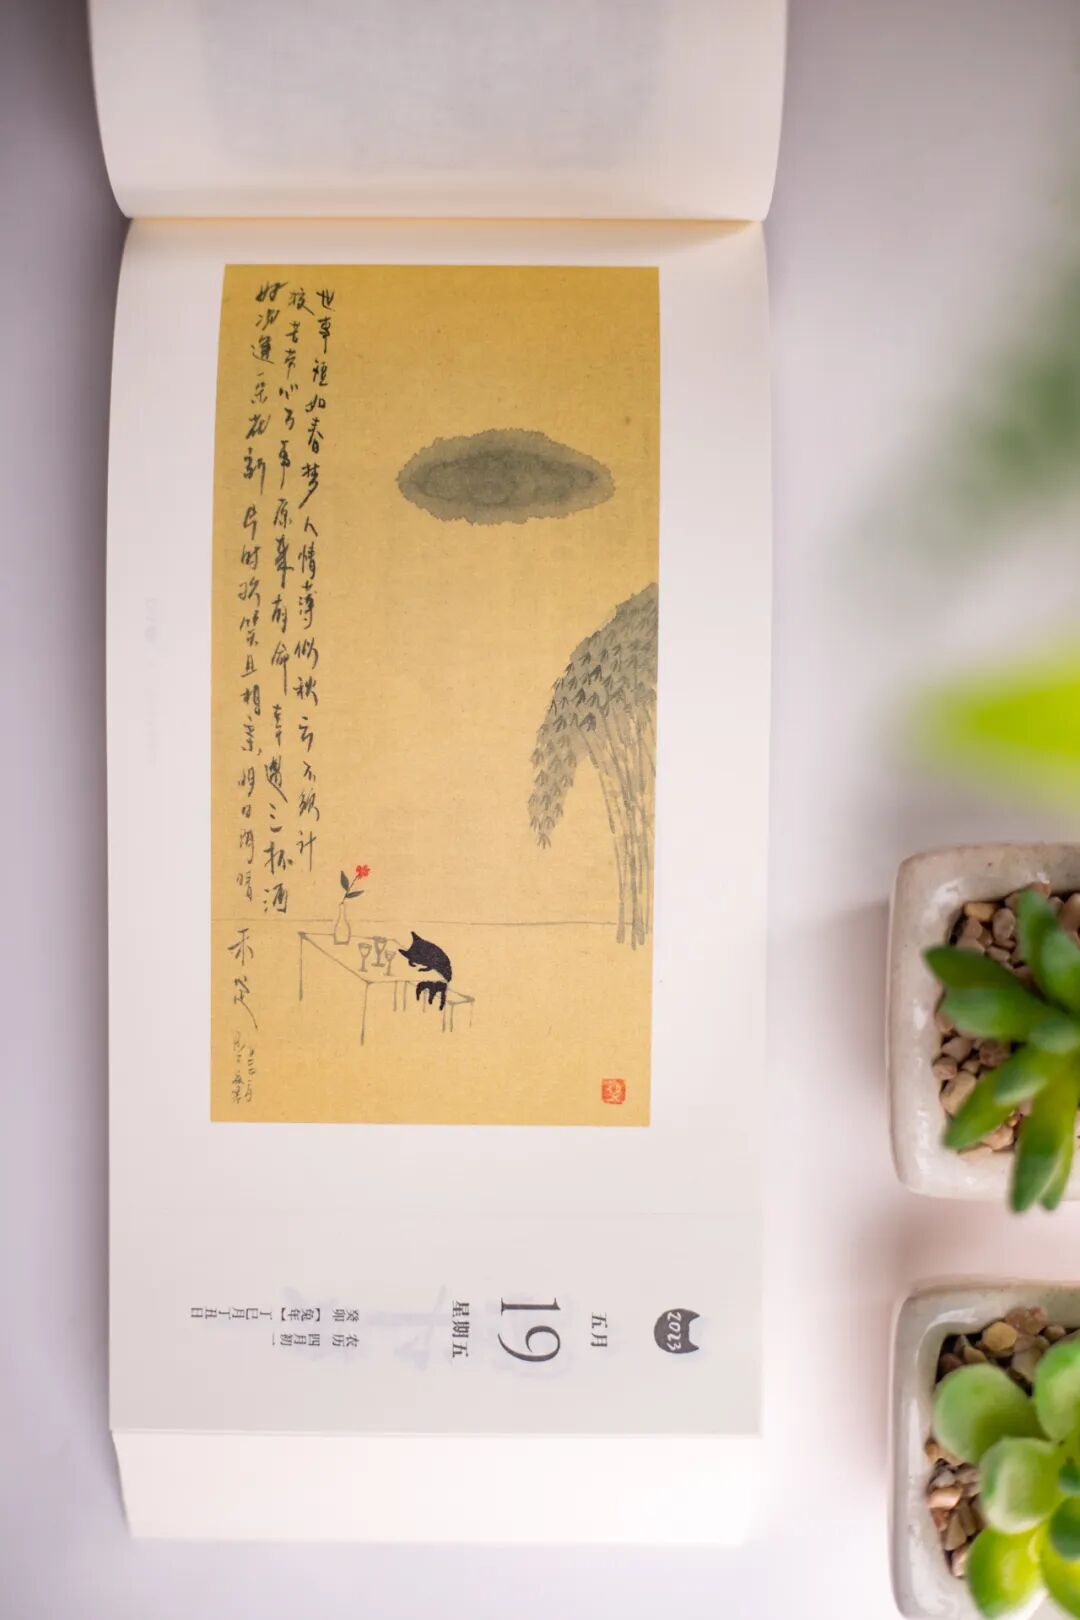 世事短如春梦人情薄似秋云不须计
较苦劳心万事原来有命幸遇三杯酒
好况逢一朵花新片时欢笑且相亲明日阴晴
未定
2023
五月
19
星期五
农历 四月初一
癸卯【兔年】丁巳月丁丑日